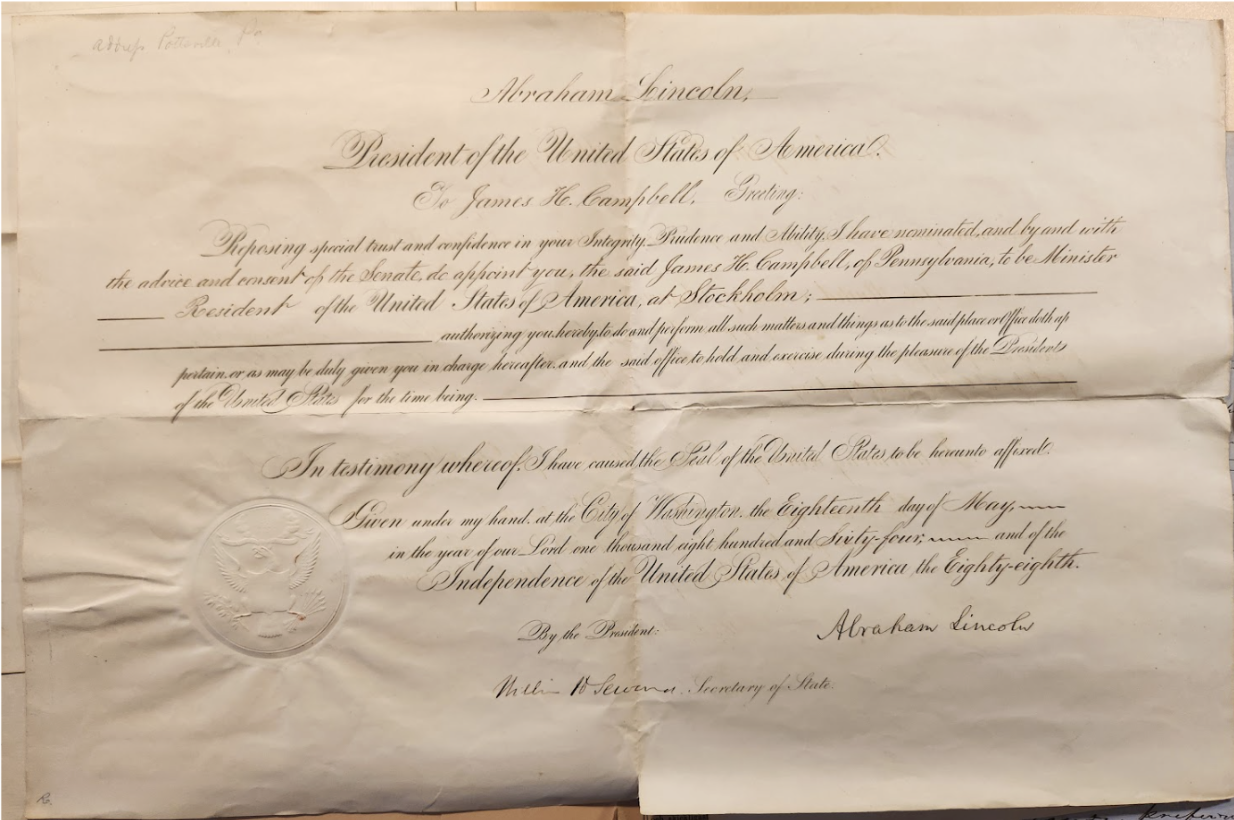 address Pottsville, Pa
Abraham Lincoln,
President of the United States of America.
To James H. Campbell, Greeting:
Reposing special trust and confidence in your Integrity, Prudence and Ability, I have nominated, and by and with
the advice and consent of the Senate, do appoint you, the said James H. Campbell, of Pennsylvania, to be Minister
Resident of the United States of America, at Stockholm;
authorizing you, hereby, to do and perform all such matters and things as to the said place or Office doth ap
pertain, or as may be duly given you in charge hereafter, and the said office, to hold and exercise during the pleasure of the President
of the United States for the time being.
In testimony whereof, I have caused the Seal of the United States, to be hereunto affixed.
Given under my hand, at the City of Washington, the Eighteenth day of May,
in the year of our Lord one thousand eight hundred and Sixty-four; and of the
Independence of the United States of America, the Eighty-eighth.
By the President:
Abraham Lincoln
William H Seward. Secretary of State.